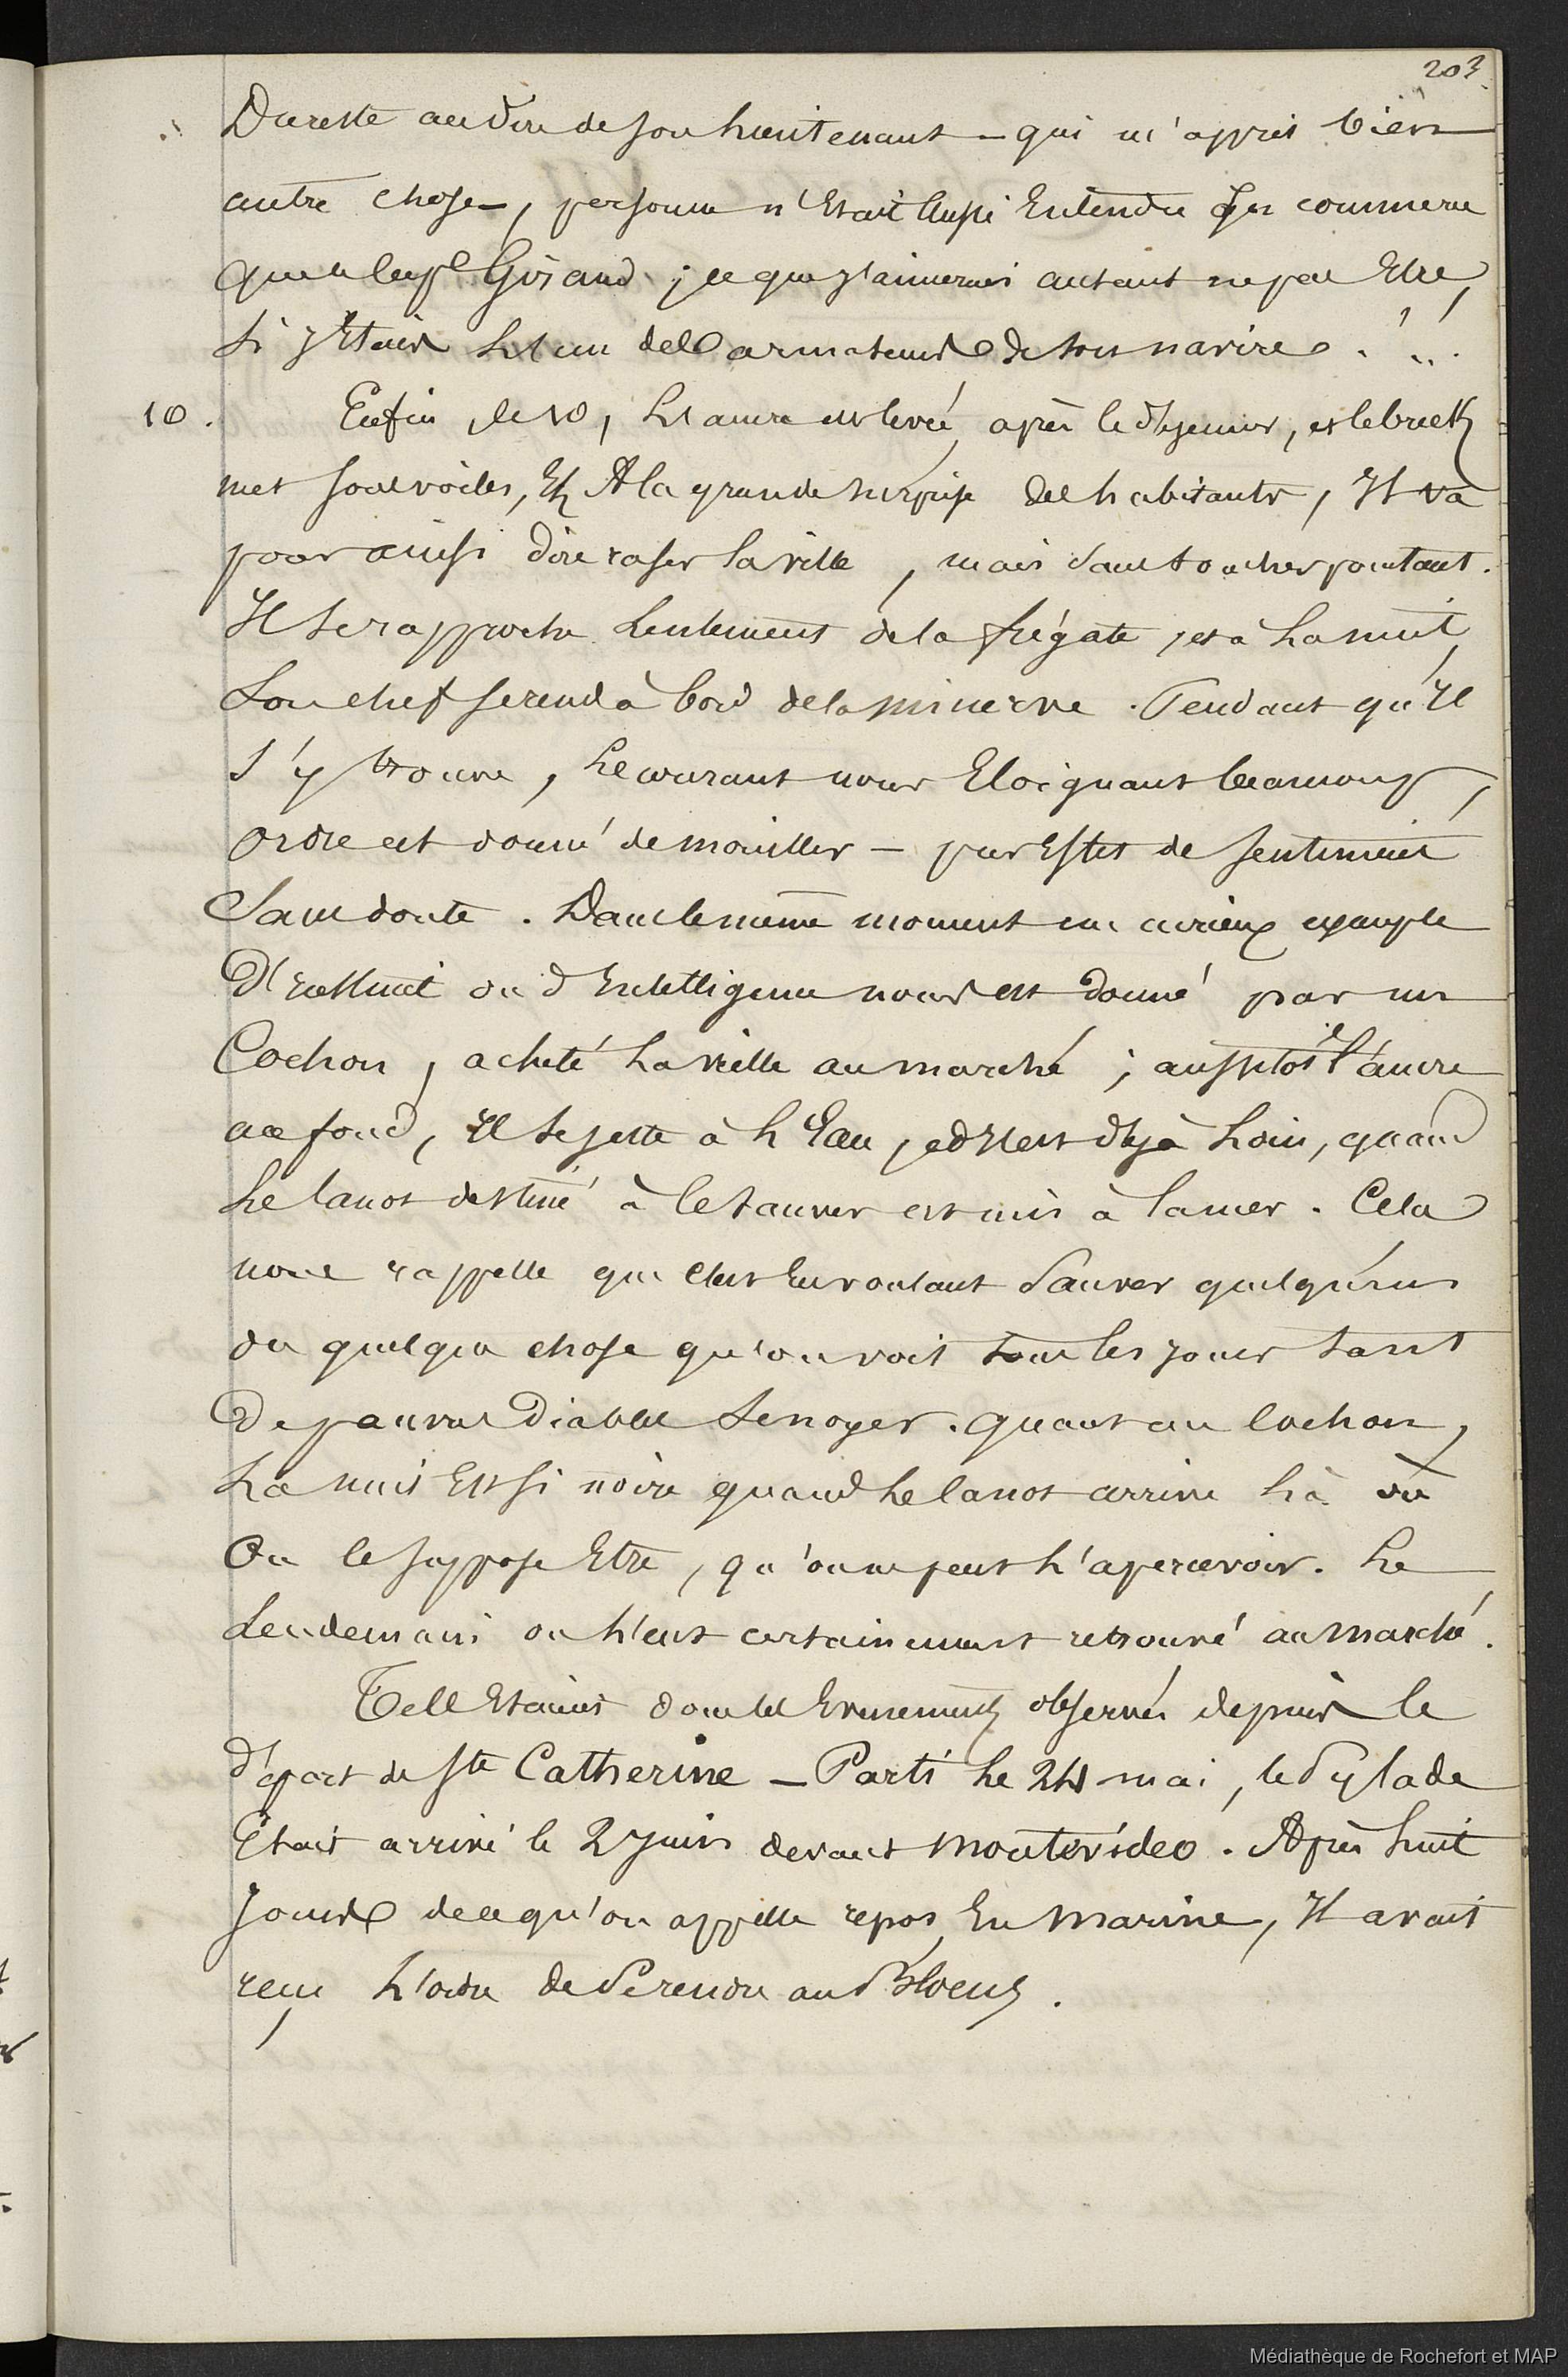 203.
Du reste au dire de son lieutenant – qui m'apprit bien
autre chose –, personne n'était aussi entendu en commerce
que le Cap.e Giraud ; ce que j'aimerais autant ne pas être,
si j'étais l'un des armateurs de son navire . ! . . !
10. Enfin, le 10, l'ancre est levée, après le déjeuner, et le brick
met sous voiles, et, A la grande surprise des habitants, Il va
pour ainsi dire raser la ville, mais sans toucher pourtant.
Il se rapproche lentement de la frégate, et à la nuit,
Son chef se rend à bord de la Minerve. Pendant qu'Il
s'y trouve, le courant nous Eloignant beaucoup,
ordre est donné de mouiller – par Effet de sentiment
Sans doute. Dans le même moment un curieux exemple
D'instinct ou d'Intelligence nous est donné par un
Cochon, acheté la veille au marché ; aussitôt l'ancre
au fond, Il se jette à l'Eau, et Il est déjà loin, quand
le canot destiné à le sauver est mis à la mer. Cela
nous rappelle que c'est En voulant sauver quelqu'un
ou quelque chose qu'on voit tous les jours tant
De pauvres Diables se noyer. Quant au cochon,
La nuit Est si noire quand le canot arrive là où
On le suppose Etre, qu'on ne peut l'apercevoir. Le
Lendemain on l'eut certainement retrouvé au marché.
Tels Etaient donc les Evenements observés depuis le
départ de Ste Catherine – Parti le 24 mai, le Pylade
Etait arrivé le 2 Juin devant Montévideo. Après huit
Jours de ce qu'on appelle repos, En Marine, Il avait
reçu l'ordre de se rendre au
Médiathèque de Rochefort et MAP